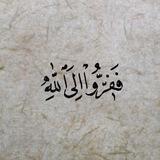 فَفِرُّوٓا۟ إِلَى ٱللَّهِ